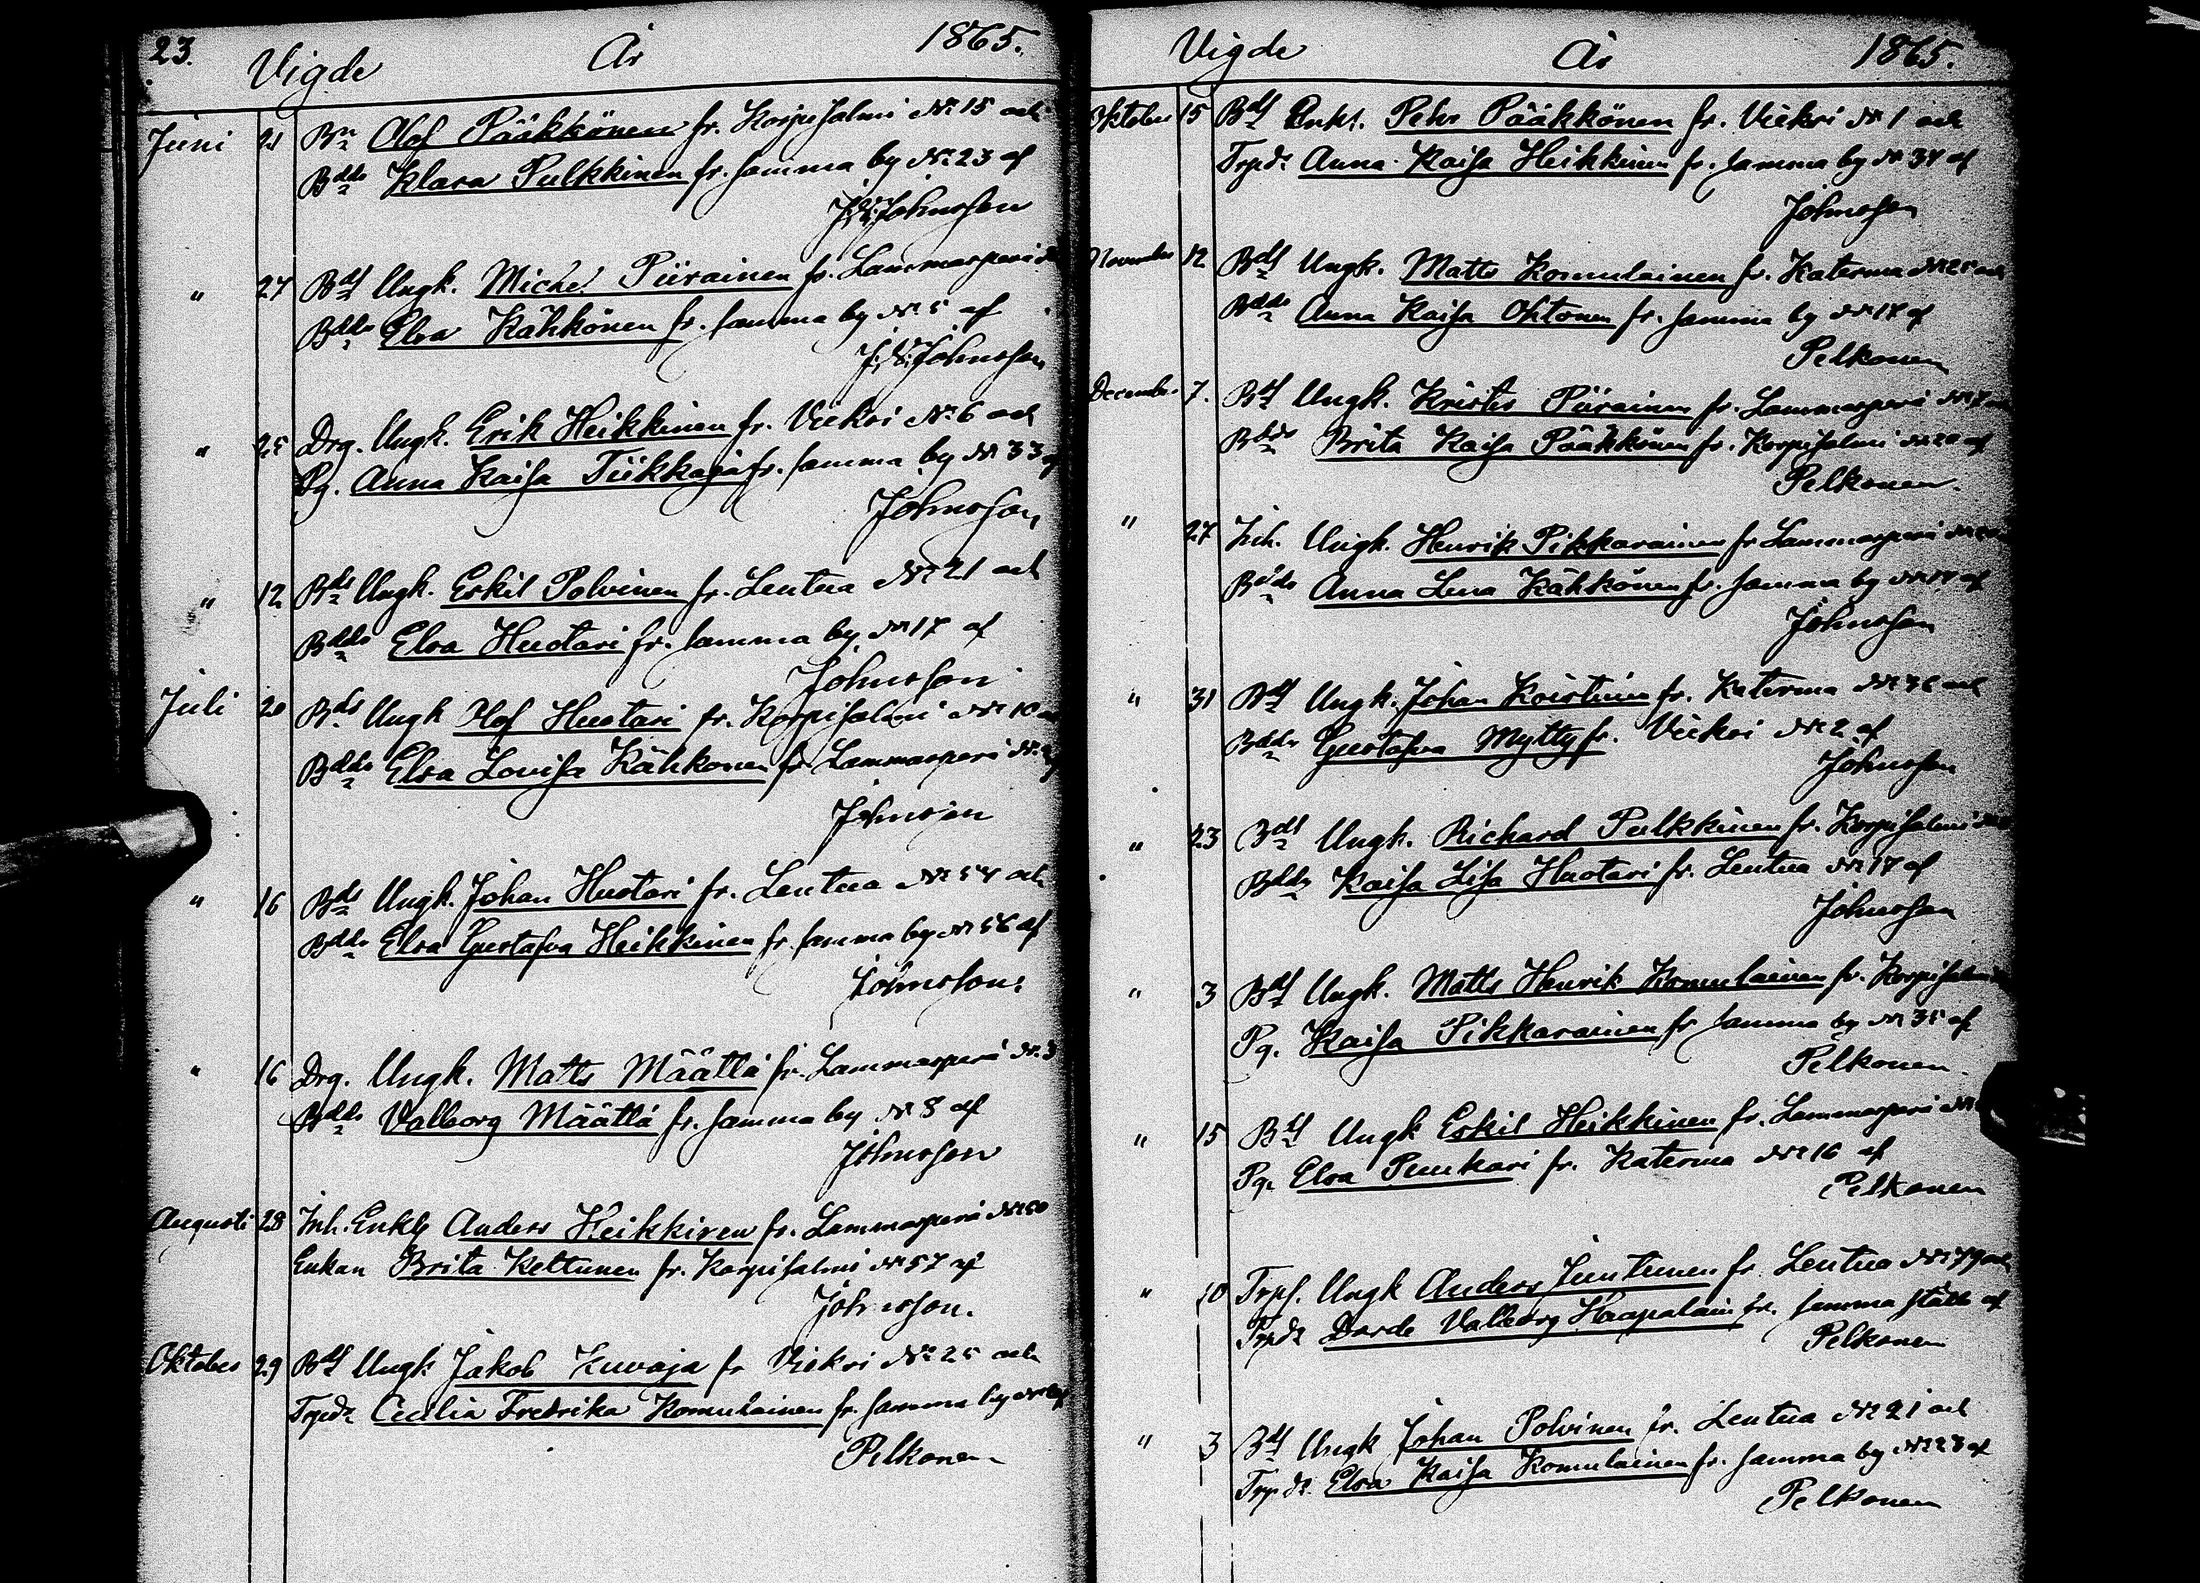 23.
Vigde År 1865.
Juni 21 Bn Olof Pääkkönen fr. Korpisalmi No 15 och
Bddr Klara Pulkkinen fr. samma by No 23 af
Johnsson
" 27 Bdf Ungk. Michel Piirainen fr. Lammasperä
Bddr Elsa Kähkönen fr. samma by No 5 af
Johnsson
" 25 Drg. Ungk. Erik Heikkinen fr. Vieksi No 6 och
Pg. Anna Kaisa Tiikkaja fr. samma by No 33 af
Johnsson
" 12 Bds Ungk. Eskil Polvinen fr. Lentua No 21 och
Bddr Elsa Huotari fr. samma by No 17 af
Johnsson
Juli 20 Bds Ungk Olof Huotari fr. Korpisalmi No 10
Bddr Elsa Lovisa Kähkönen fr. Lammasperä No
Johnsson
" 16 Bds Ungk. Johan Huotari fr. Lentua No 54 och
Bddr Elsa Gustafva Heikkinen fr. samma by No 56 af
Johnsson
" 16 Drg. Ungk. Matts Määttä fr. Lammasperä No 3
Bddr Valborg Määttä fr. samma by No 8 af
Johnsson
Augusti 28 Inh. Enkl. Anders Heikkinen fr. Lammasperä No 50
Enkan Brita Keltunen fr. Korpisalmi No 57 af
Johnsson.
Oktober 29 Bdf Ungk Jakob Kuvaja fr Vieksi No 25 och
Trpdr Cecilia Fredrika Komulainen fr. samma by
Pelkonen
Vigde År 1865.
Oktober 15 Bdf Enkl. Petr Pääkkönen fr. Vieksi No 1 och
Trpdr Anna Kaisa Heikkinen fr. samma by No 34 af
Johnsson
November 12 Bdf Ungk. Matts Komulainen fr. Katerma No 25 och
Bddr Anna Kaisa Oktonen fr. samma by No 17 af
Pelkonen
December 7. Bdf Ungk. Krister Piirainen fr. Lammasperä No 7
Bddr Brita Kaisa Pääkkönen fr. Korpisalmi No 20 af
Pelkonen.
" 27 Inh. Ungk. Henrik Pikkarainen fr Lammasperä
Bddr Anna Lena Kähkönen fr. samma by No af
Johnsson
" 31 Bdf Ungk. Johan Koistinen fr. Katerma No 36 och
Bddr Gustafva Mytty fr. Vieksi No 2 af
Johnsson
" 23 Bdf Ungk. Richard Pulkkinen fr. Korpisalmi
Bddr Kaisa Lisa Huotari fr. Lentua No 17 af
Johnsson
" 3 Bdf Ungk. Matts Henrik Komulainen fr. Korpisalmi
Pg. Kaisa Pikkarainen fr samma by No 35 af
Pelkonen.
" 15 Bdf Ungk Eskil Heikkinen fr. Lammasperä No
Pg. Elsa Puukari fr. Katerma No 16 af
Pelkonen
" 10 Trpf. Ungk Anders Juntunen fr Lentua No 79 och
Trpdr Dorde Valborg Haapalain fr. samma ställe af
Pelkonen
" 3 Bdf Ungk Johan Polvinen fr. Lentua No 21 och
Trpdr Elsa Kaisa Komulainen fr. samma by No 28 af
Pelkonen